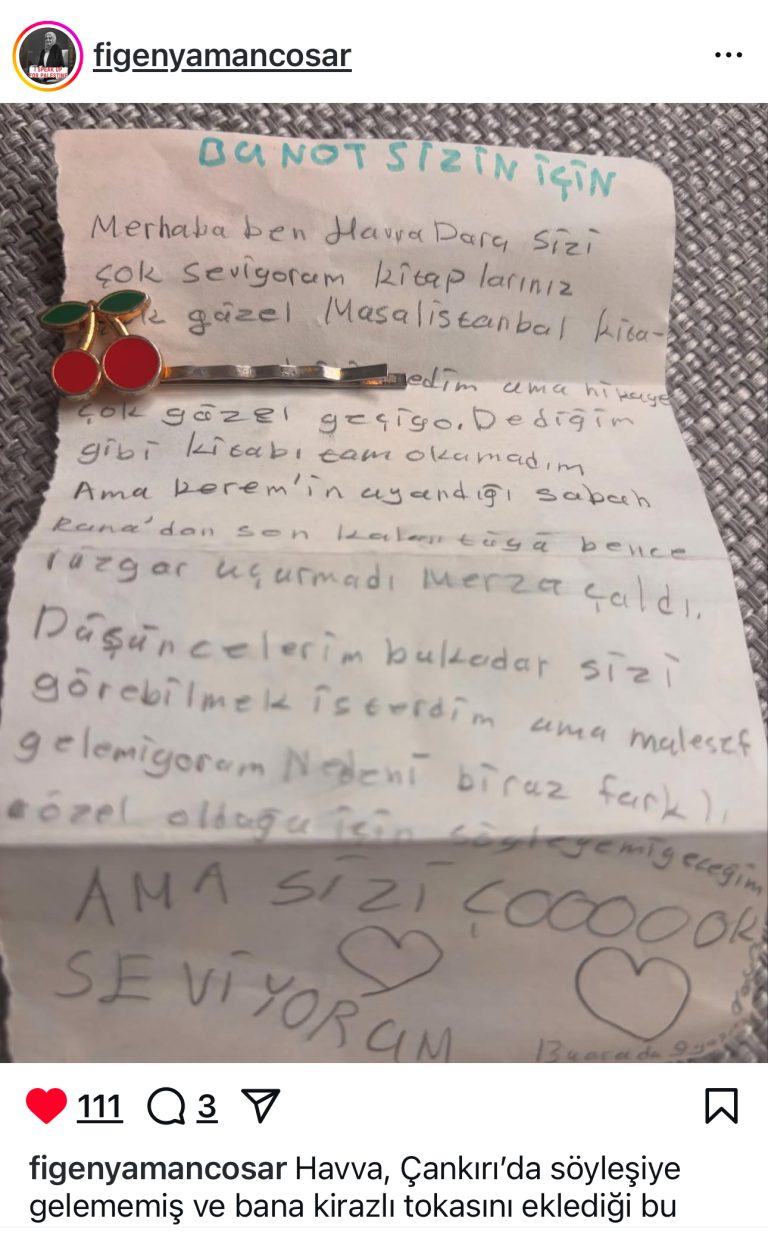 figenyamancosar
I SPEAK UP
FOR PALESTINE
BU NOT SİZİN İÇİN
Merhaba ben Havva Dara sizi
çok seviyoram kitaplarınız
güzel Masalistanbal kita-
edim ama hikaye
çok güzel geçiyo. Dediğim
gibi kitabı tam okumadım
Ama kerem'in uyandığı sabah
Rana'dan son kalan tüyü bence
rüzgar uçurmadı Merza çaldı.
Düşüncelerim bukadar sizi
görebilmek isterdim ama malesef
gelemiyoram Nedeni biraz farklı,
özel olduğu için söyleyemiyeceğim
AMA SİZİ ÇOOOOOOK
SEVİYORUM
Bu arada 9
111 3
figenyamancosar Havva, Çankırı’da söyleşiye
gelememiş ve bana kirazlı tokasını eklediği bu